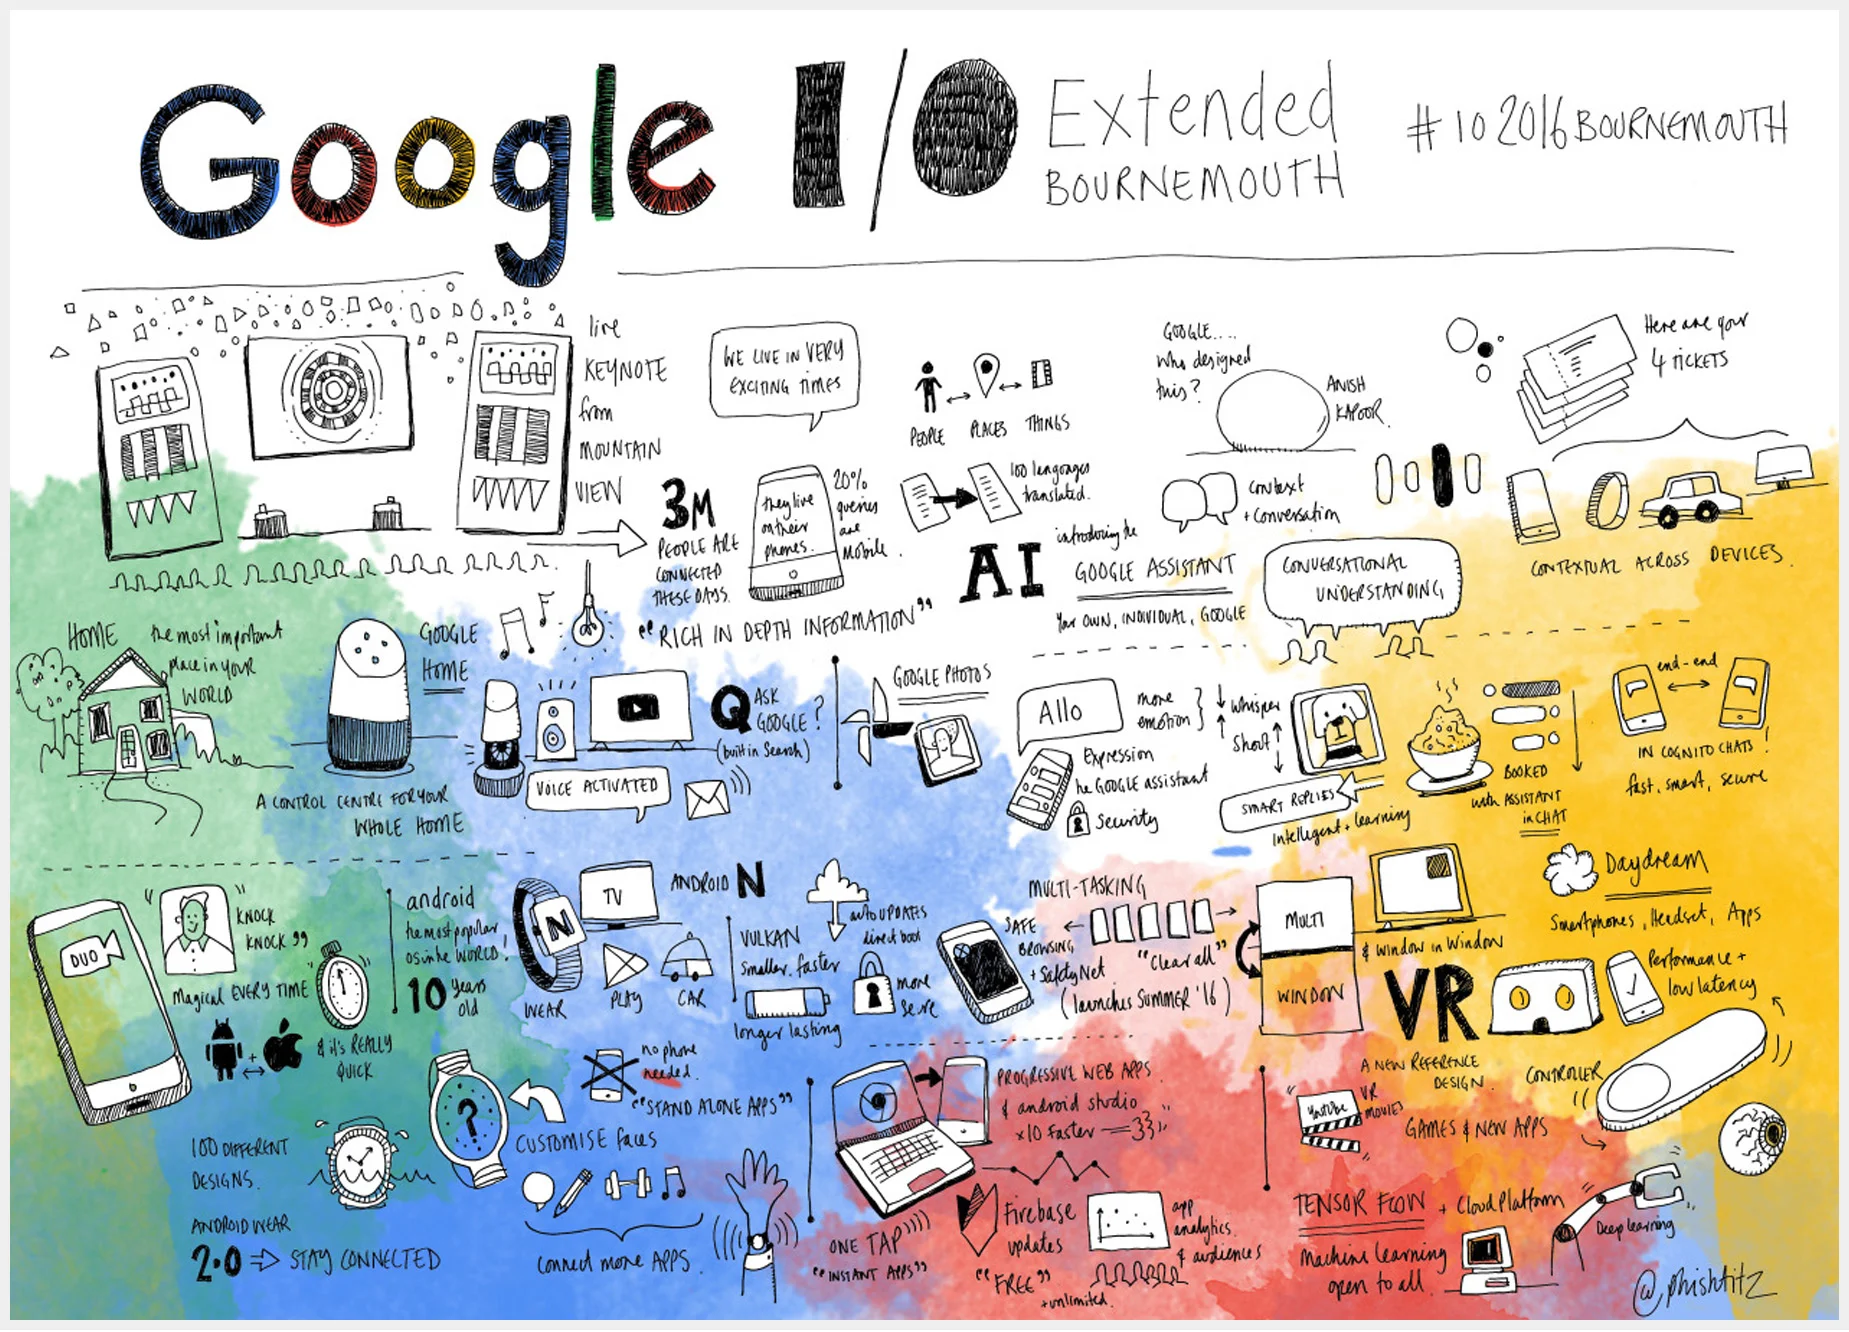 Google I/O Extended
BOURNEMOUTH
#IO2016BOURNEMOUTH
live
KEYNOTE
from
MOUNTAIN
VIEW
WE LIVE IN VERY
EXCITING TIMES
PEOPLE PLACES THINGS
GOOGLE....
who designed
this?
ANISH
KAPOOR.
Here are your
4 TICKETS
3M
PEOPLE ARE
CONNECTED
THESE DAYS.
they live
on their
phones.
20%
queries
are
Mobile.
100 languages
translated.
"RICH IN DEPTH INFORMATION"
AI
context
+ Conversation
introducing the
GOOGLE ASSISTANT
Your OWN, INDIVIDUAL, GOOGLE
CONVERSATIONAL
UNDERSTANDING
CONTEXTUAL ACROSS DEVICES.
HOME
the most important
place in your
WORLD
GOOGLE
HOME
A CONTROL CENTRE FOR YOUR
WHOLE HOME
VOICE ACTIVATED
Q ASK
GOOGLE?
(built in Search)
GOOGLE PHOTOS
Allo
more
emotion }
Whisper
Shout
Expression
he GOOGLE assistant
Security
SMART REPLIES
Intelligent + learning
BOOKED
with ASSISTANT
in CHAT
end-end
IN COGNITO CHATS!
fast, smart, secure
DUO
"
KNOCK
KNOCK"
Magical EVERY TIME
& it's REALLY
QUICK
android
the most popular
os in the WORLD!
10 years
old
N
WEAR
TV
PLAY
CAR
ANDROID N
VULKAN
Smaller. faster
longer lasting
auto UPDATES
direct boot
more
Secure
SAFE
BROWSING
+ SafetyNet
MULTI-TASKING
"Clear all"
(launches SUMMER '16)
MULTI
WINDOW
& Window in Window
Daydream
Smartphones, Headset, Apps
VR
Performance +
low latency
A NEW REFERENCE
DESIGN.
CONTROLLER
YouTube
VR
MOVIES
GAMES & NEW APPS
100 DIFFERENT
DESIGNS.
ANDROID WEAR
2.0 => STAY CONNECTED
?
CUSTOMISE faces
no phone
needed.
"STAND ALONE APPS"
connect more APPS.
PROGRESSIVE WEB APPS
& android studio
x10 Faster
ONE TAP
"INSTANT APPS"
Firebase
updates
"FREE"
+unlimited.
app
analytics.
& audiences
TENSOR FLOW + Cloud Platform
Machine Learning
open to all.
Deep learning
@phishtitz